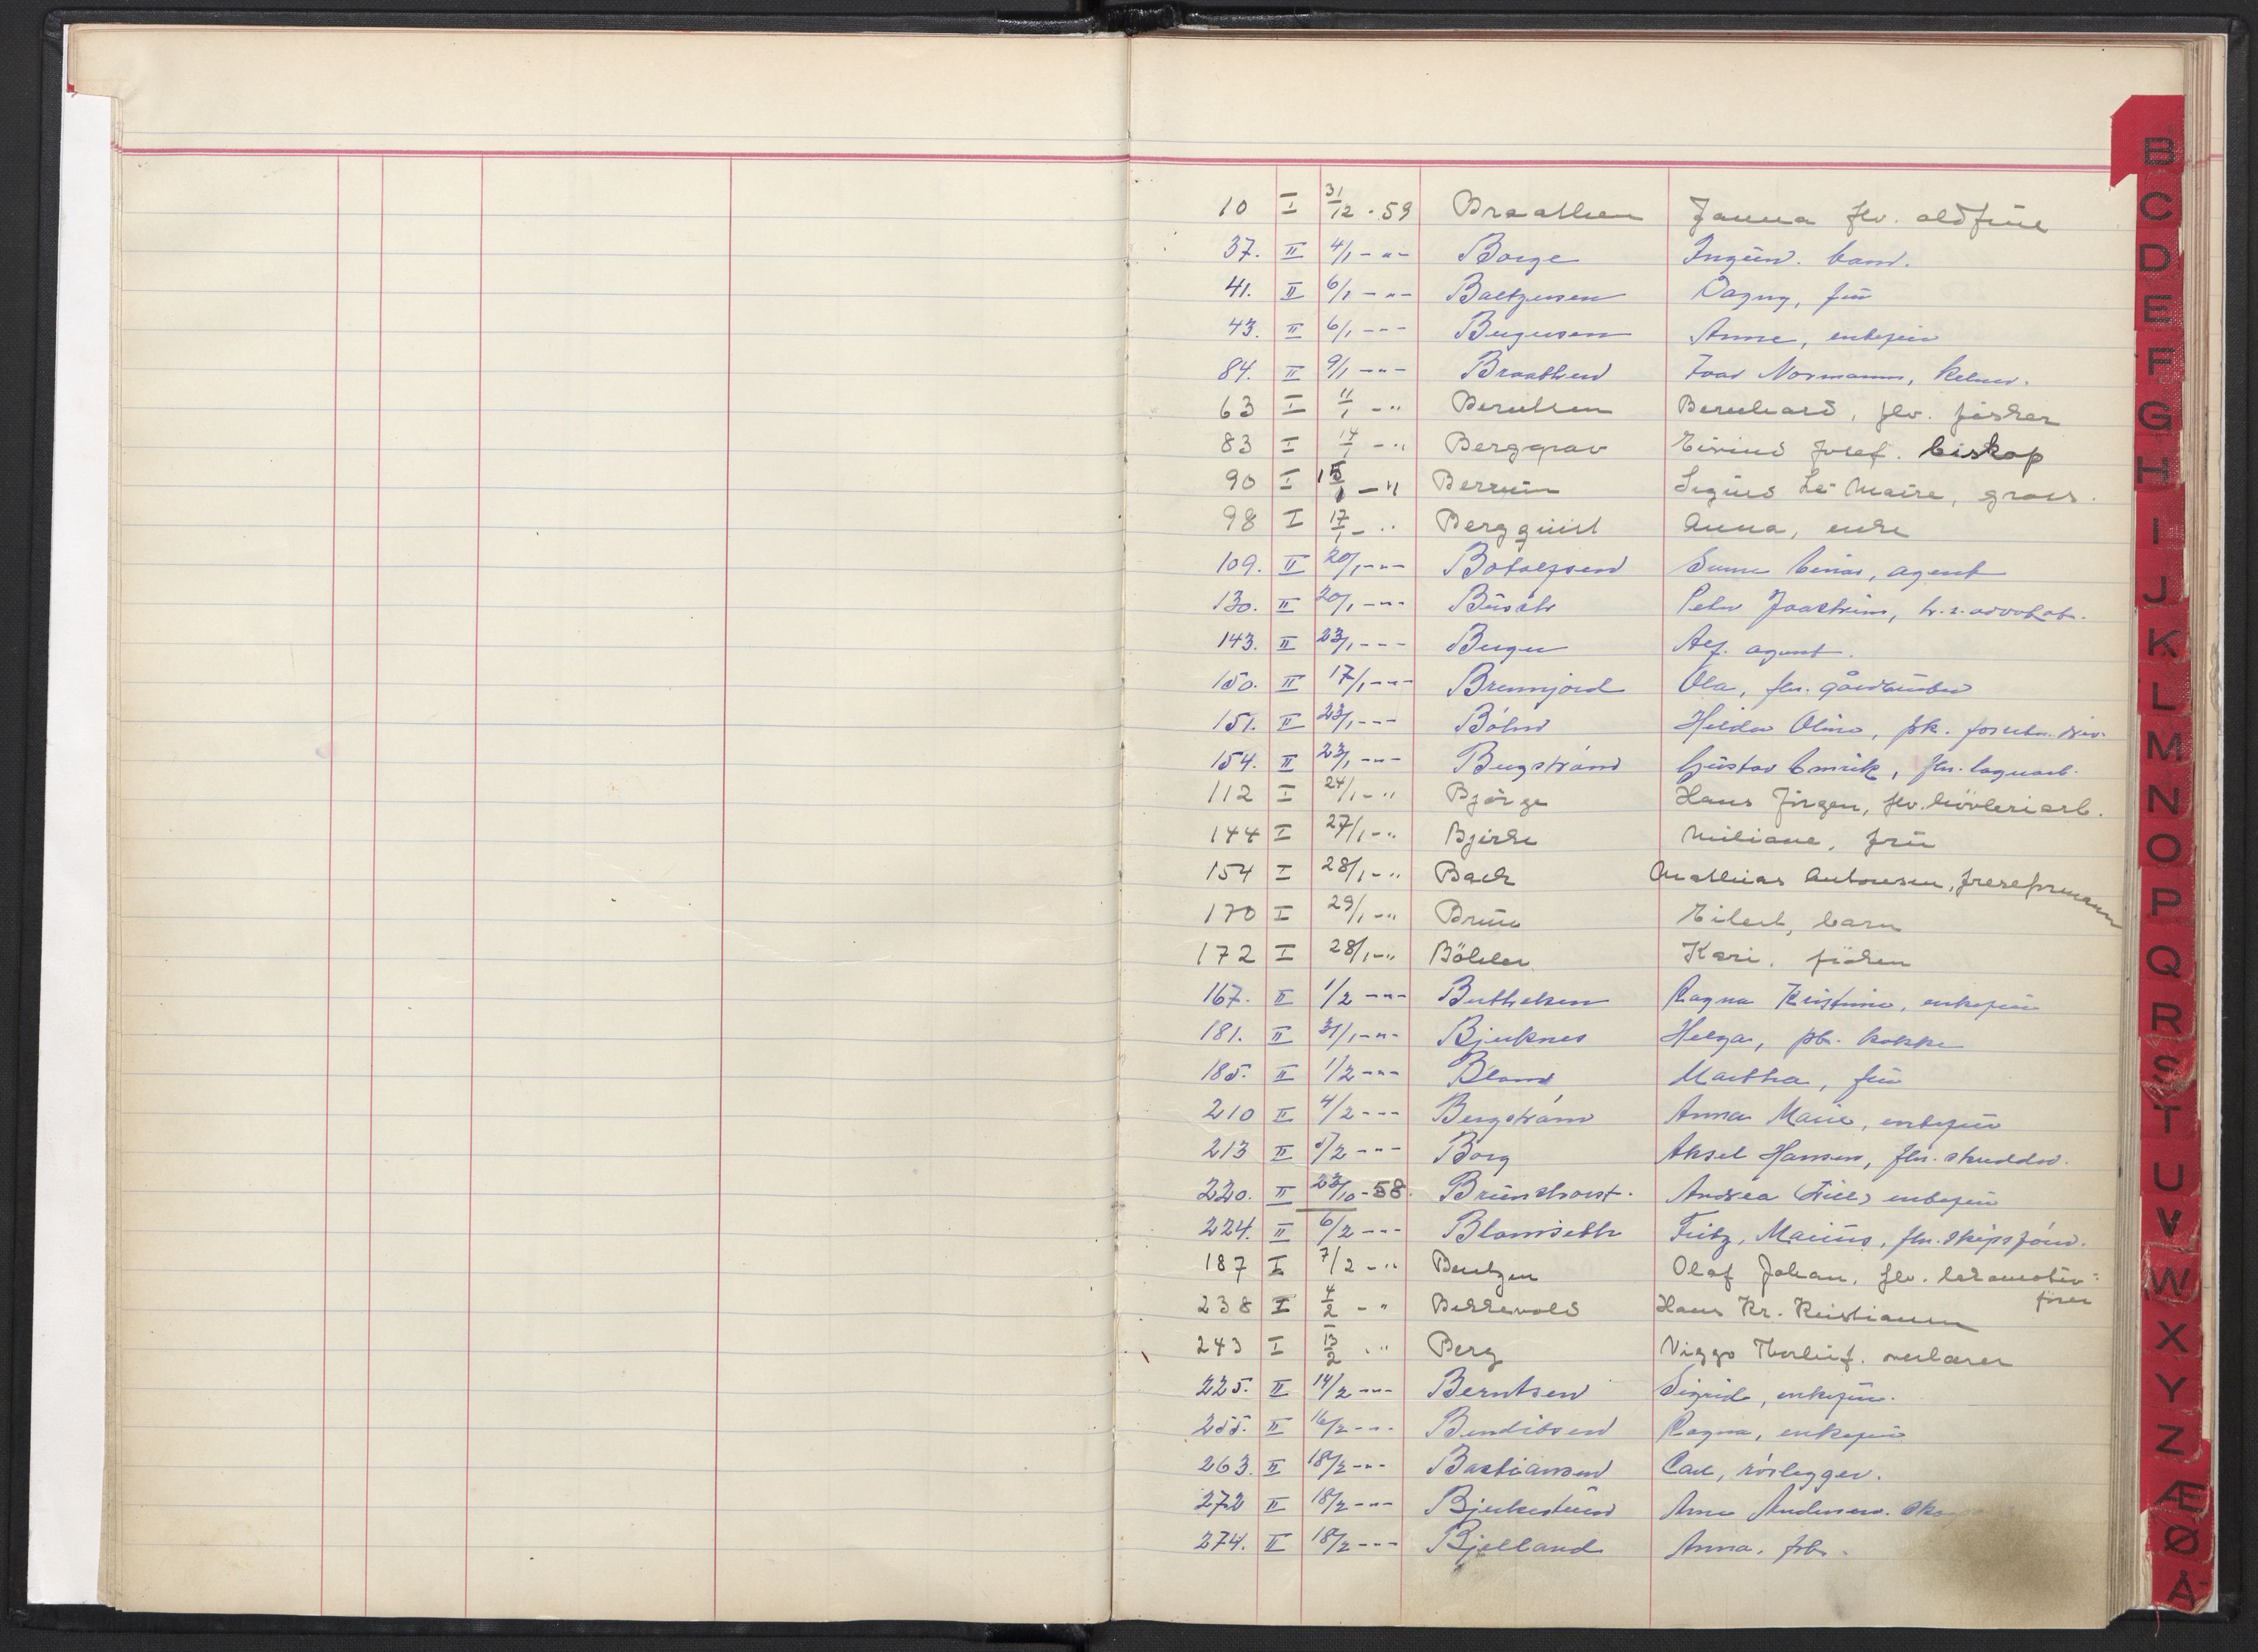 10 I 31/12 - 59 Braathen Janna flv. oldfrue
37. II 4/1 - " - Borge Ingunn. barn.
41. II 6/1 - " - Baltzersen Dagny, fru
43. II 6/1 - - - Bergersen Anne, enkefru
84. II 9/1 - " - Braathen Ivar Normann, kelner.
63 I 11/1 - " Berntsen Bernhard, flv. fisker
83 I 14/1 - " Berggrav Eivind Josef. biskop
90 I 15/1 - " Berrum Sigurd Le Maire, gross.
98 I 17/1 - " Bergquist Anna, enke
109. II 20/1 - " - Botolfsen Sverre Einar, agent
130. II 20/1 - " - Busch Peter Joachim, h.r. advokat.
143. II 23/1 - - - Berger Alf. agent.
150. II 17/1 - " - Brennjord Ola, flv. gårdbruker
151. II 23/1 - - - Böhn Hilda Oline, fhv.
154. II 23/1 - " - Bergstrand Gustav Emrik, flv. lagerarb.
112 I 24/1 - " Bjørge Hans Jörgen, flv. hövleriarb.
144 I 27/1 - " Bjerke Miliane, fru
154 I 28/1 - " Bach Mathias Antonsen, freseformann
170 I 29/1 - " Bruu Eilert, barn
172 I 28/1 - " Böhler Kari. fröken
167. II 1/2 - " - Berthelsen Ragna Kristine, enkefru
181. II 31/1 - " - Bjerknes Helga, pb. kokke
185. II 1/2 - " - Bland Martha, fru
210 II 4/2 - - - Bergstrand Anna Marie, enkefru
213 II 5/2 - " - Borg Aksel Hansen, flv. skredder.
220. II 23/10 - 58. Brunchorst. Andrea enkefru
224. II 6/2 - - - Blomseth Fritz, Marius, flv. skipsfører.
187 I 7/2 - " Bentzen Olaf Johan, flv. lokomotiv=
fører
238 I 4/2 - " Bekkevold Hans Kr. Kristiansen
243 I 13/2 " Berg Viggo Thorleif. overlærer
225. II 14/2 - " - Berntsen Sigrid, enkefru.
255. II 16/2 - - - Bendiksen Ragna, enkefru
263. II 18/2 - " - Bastiansen Carl, rørlegger.
272 II 18/2 - " - Bjerkestrand Arne Andersen.
274. II 18/2 - - - Bjelland Anna. frk.
B
C
D
E
F
G
H
I
J
K
L
M
N
O
P
Q
R
S
T
U
V
W
X
Y
Z
Æ
Ø
Å